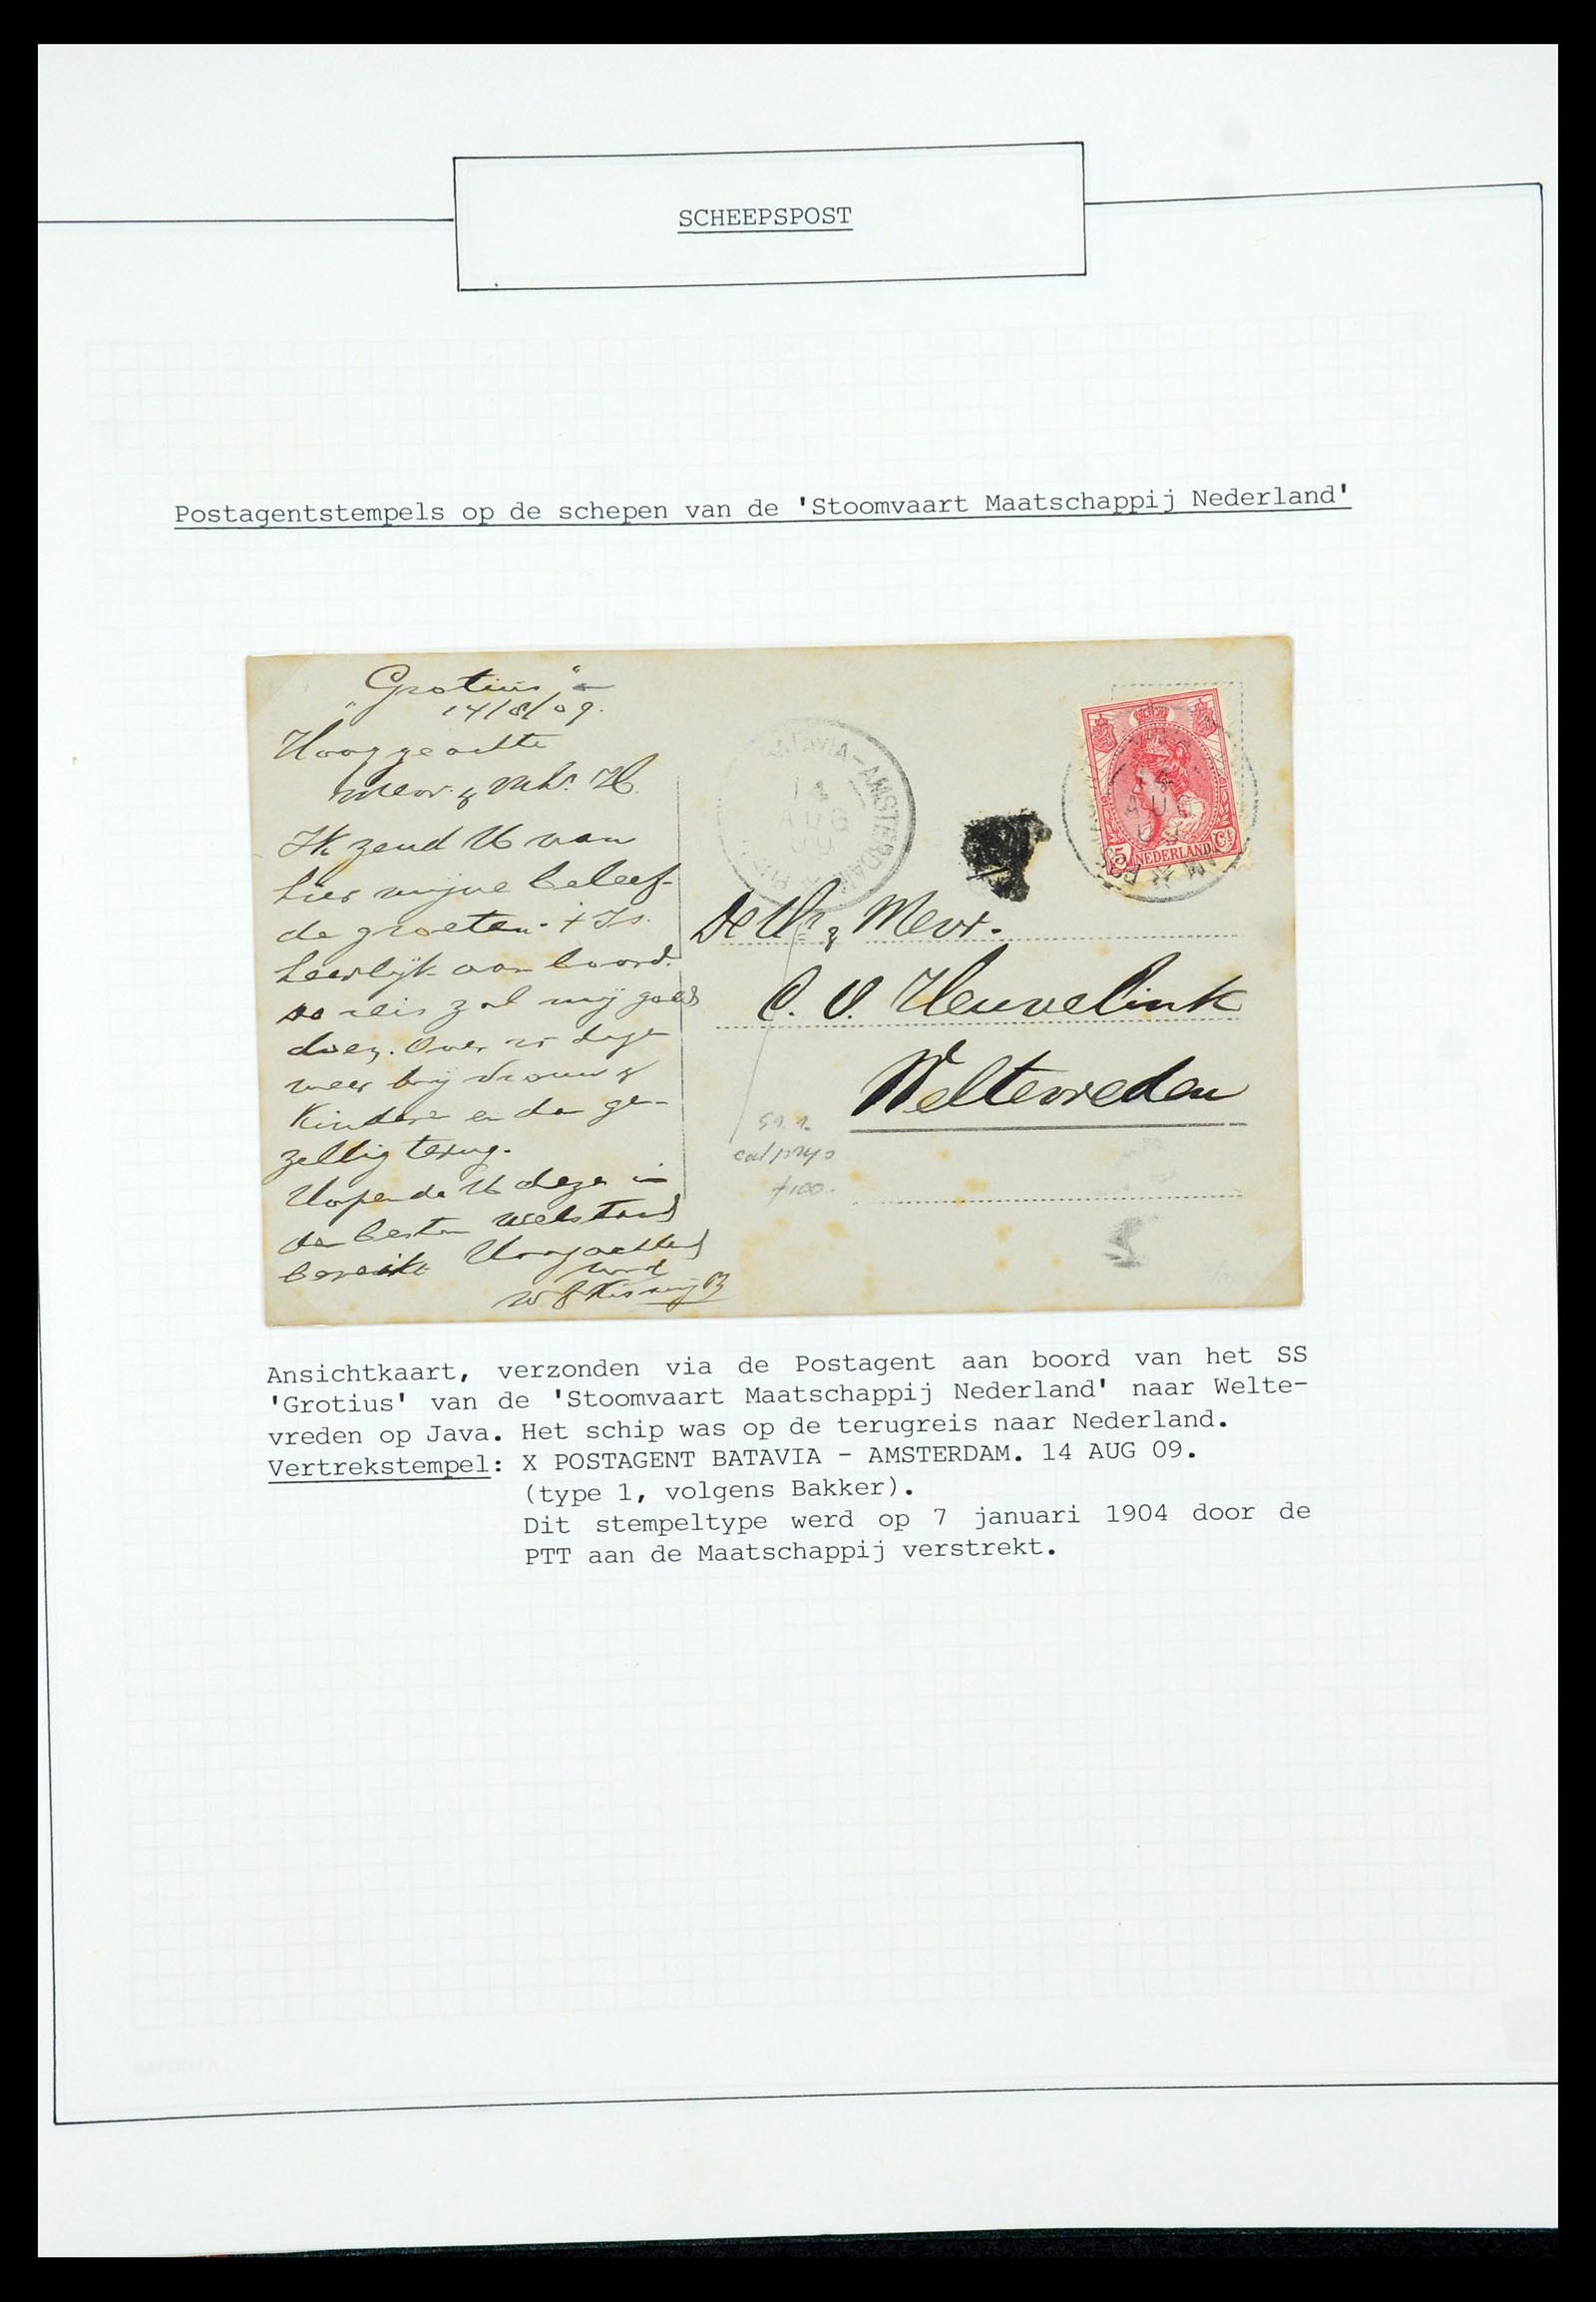 SCHEEPSPOST
Postagentstempels op de schepen van de 'Stoomvaart Maatschappij Nederland'
"Grotius"
14/8/09.
Hooggeachte
Mevr. & Mhr. H.
Ik zend U van
hier mijne beleef-
de groeten. Is
heerlijk aan boord.
reis zal mij goed
doen. Over dage
weer bij vrouw &
Kinders en de ge-
zellig terug.
Hopende U deze in
de besten welstand
bereikt Hoogachtend
BATAVIA-AMSTERDAM
14
AUG
09
14
AUG
09
5 NEDERLAND Ct
De Hr & Mevr.
C. V. Heuvelink
Weltevreden
+100.
Ansichtkaart, verzonden via de Postagent aan boord van het SS
'Grotius' van de 'Stoomvaart Maatschappij Nederland' naar Welte-
vreden op Java. Het schip was op de terugreis naar Nederland.
Vertrekstempel: X POSTAGENT BATAVIA - AMSTERDAM. 14 AUG 09.
(type 1, volgens Bakker).
Dit stempeltype werd op 7 januari 1904 door de
PTT aan de Maatschappij verstrekt.